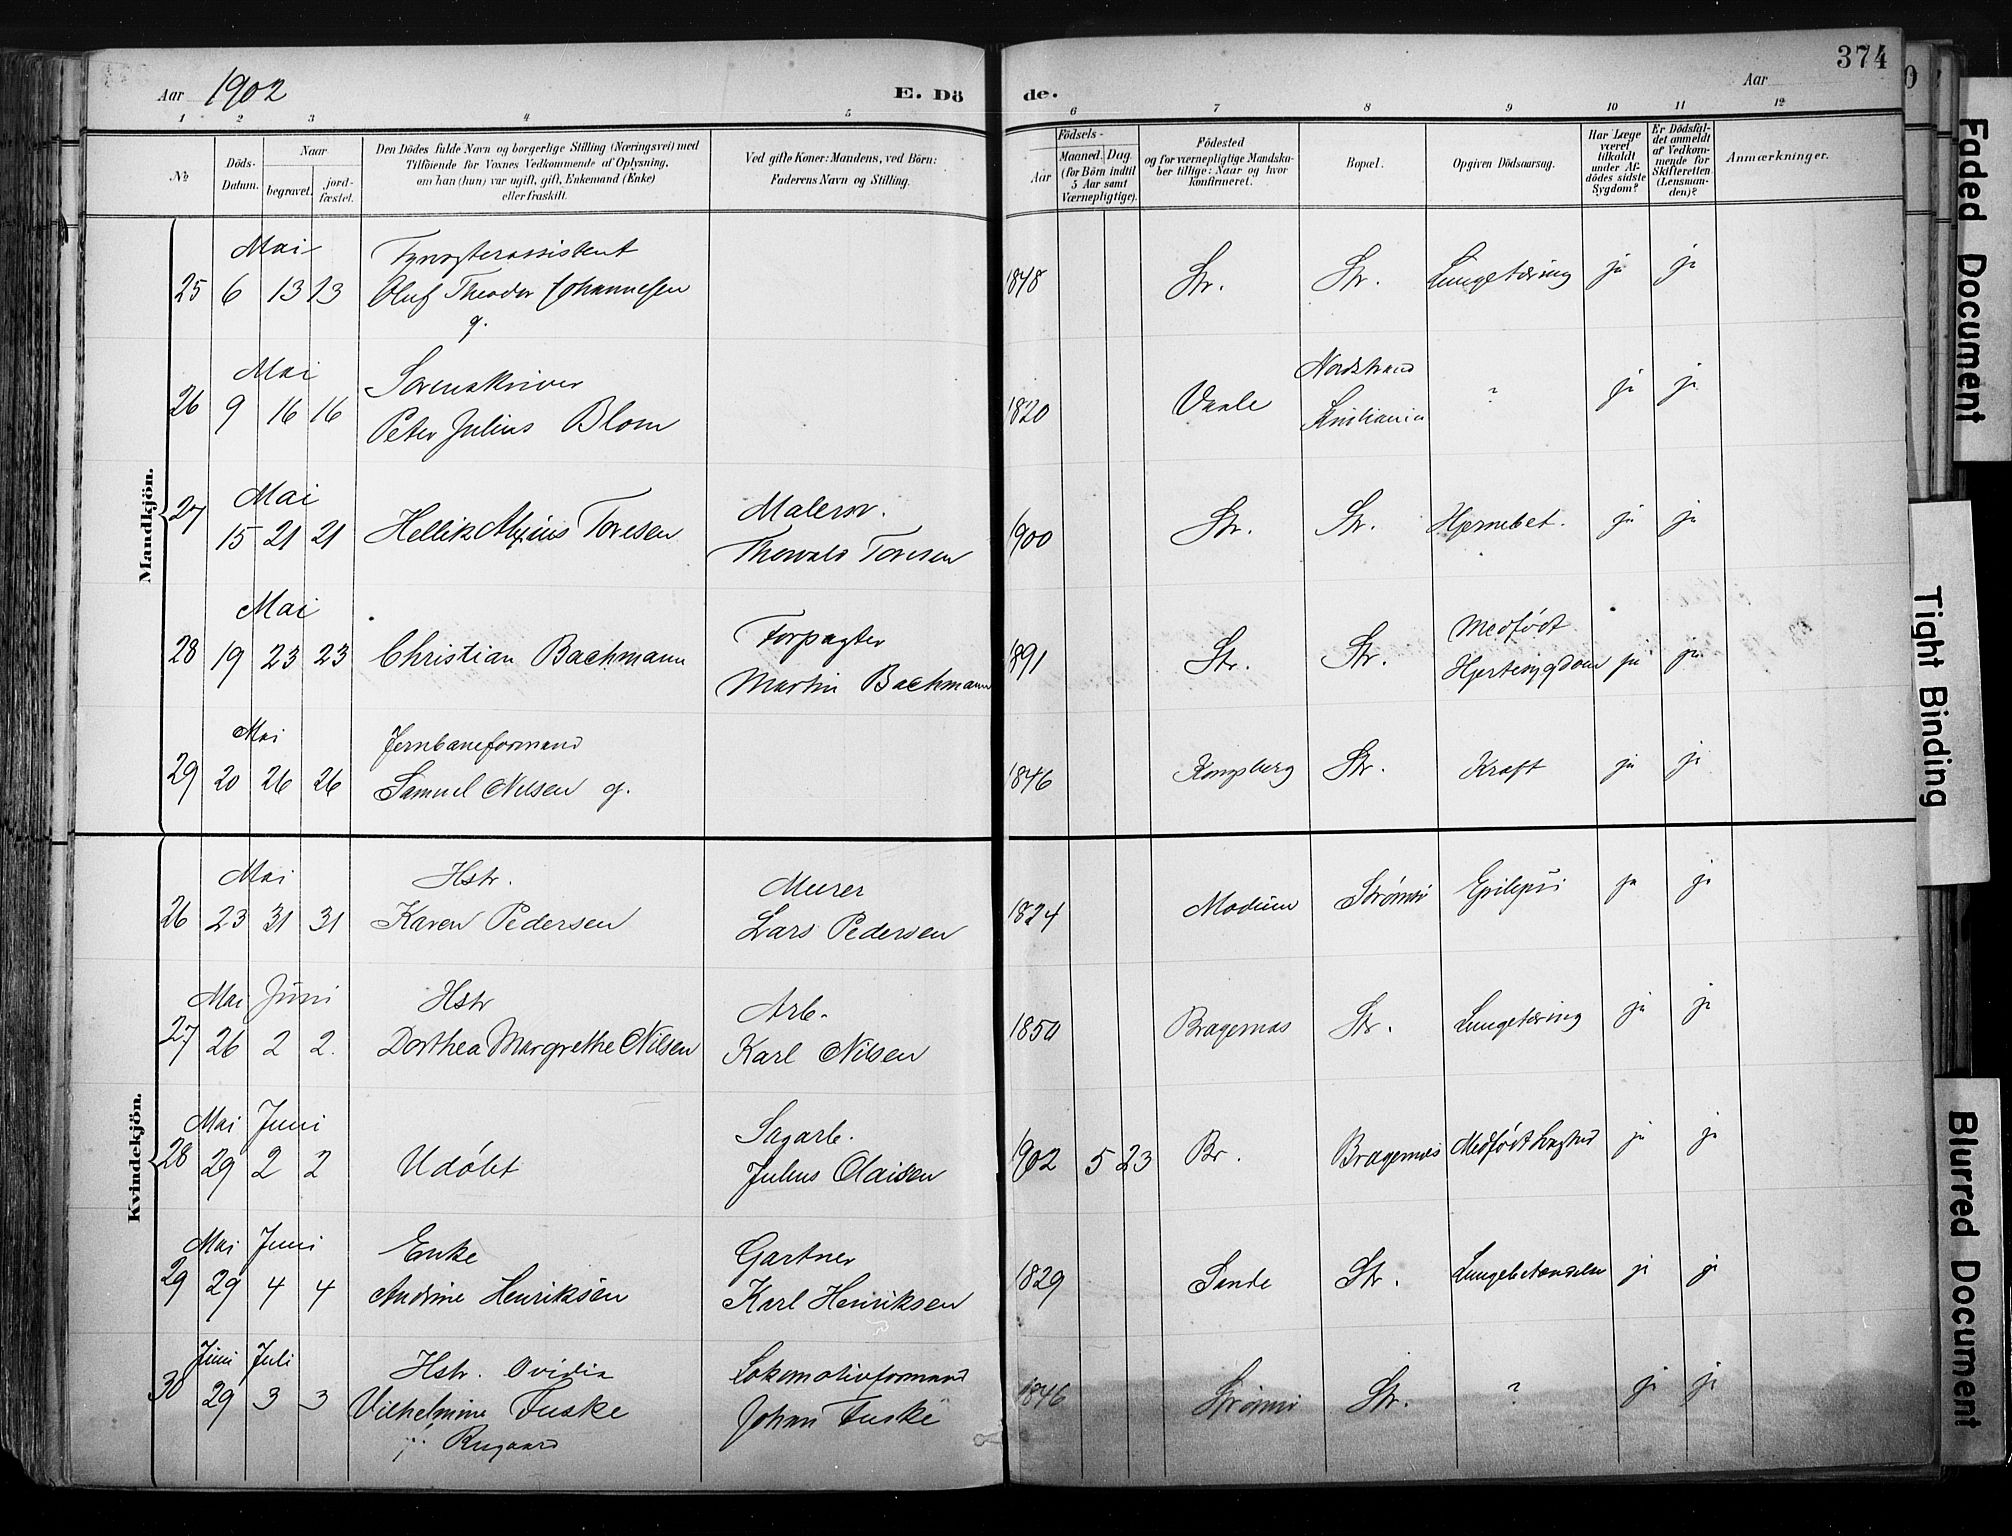 374
Aar 1902 E. Dö de. Aar
1 2 3 4 5 6 7 8 9 10 11 12
№ Döds-Datum. Naar begravet. jord-fæstet. Den Dödes fulde Navn og borgerlige Stilling (Næringsvei) med Tilföiende for Voxnes Vedkommende af Oplysning, om han (hun) var ugift, gift, Enkemand (Enke) eller fraskilt. Ved gifte Koner: Mandens, ved Börn: Faderens Navn og Stilling. Födsels- Aar Maaned. Dag. (for Börn indtil 5 Aar samt Værnepligtige). Födested og for værnepligtige Mandskaber tillige: Naar og hvor konfirmeret. Bopæl. Opgiven Dödsaarsag. Har Læge været tilkaldt under Afdödes sidste Sygdom? Er Dödsfaldet anmeldt af Vedkommende for Skifteretten (Lensmanden)? Anmærkninger.
Mandkjön.
Mai Fyrvogterassistent
25 6 13 13 Oluf Theodor Johannessen 1848 Str. Str. Lungetæring ja ja
g.
Mai Sorenskriver Nordstrand
26 9 16 16 Peter Julius Blom 1820 Vaale Kristiania ? ja ja
Mai Malersv.
27 15 21 21 Hellik Toresen Thorvald Toresen 1900 Str. Str. Hjernebet. ja ja
Mai Forpagter Medfødt
28 19 23 23 Christian Bachmann Martin Bachmann Str. Str. Hjertesygdom ja ja
Mai Jernbaneformand
29 20 26 26 Samuel Nilsen g. 1846 Kongsberg Str. Kræft ja ja
Kvindekjön.
Mai Hstr. Murer
26 23 31 31 Karen Pedersen Lars Pedersen 1824 Modum Strømsø Epilepsi ja ja
Mai Juni Hstr Arb.
27 26 2 2. Dorthea Margrethe Nilsen Karl Nilsen 1850 Bragernæs Str. Lungetæring ja ja
Mai Juni Sagarb.
28 29 2 2 Udøbt Julius Olaisen 1902 5 23 Br. Bragernæs Medfødt Svaghed ja ja
Mai Juni Enke Gartner
29 29 4 4 Andrine Henriksen Karl Henriksen 1829 Sande Str. Lungebetændelse ja ja
Juni Juli Hstr. Ovidia Lokomotivformand
30 29 3 3 Vilhelmine Fuske Johan Fuske 1846 Strømsø Str. ? ja ja
Faded Document
Tight Binding
Blurred Document